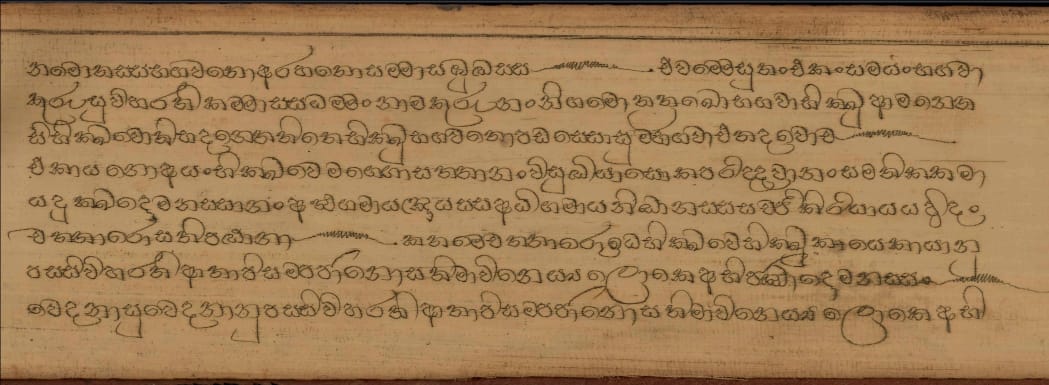 නමොතස්සභගවතොඅරහතොසම්මාසම්බුද්ධස්ස එවම්මෙසුතංඑකංසමයංභගවා
කුරූසුවිහරතිකම්මාස්සධම්මංනාමකුරූනංනිගමොතත්රඛොභගවාභික්ඛූආමන්තෙ
සිභික්ඛවොතිභදන්තෙතිතෙභික්ඛූභගවතොපච්චස්සොසුම්භගවාඑතදවොච
එකායනොඅයංභික්ඛවෙමග්ගොසත්තානංවිසුද්ධියාසොකපරිද්දවානංසමතික්කමා
යදුක්ඛදොමනස්සානංඅත්ථගමායඤායස්සඅධිගමායනිබ්බානස්සසච්ඡිකිරියායයදිදං
චත්තාරොසතිපට්ඨානා කතමෙචත්තාරොඉධභික්ඛවෙභික්ඛුකායෙකායානු
පස්සිවිහරතිආතාපිසම්පජානොසතිමාවිනෙය්යලොකෙඅභිජ්ඣාදොමනස්සං
වෙදනාසුවෙදනානුපස්සිවිහරතිආතාපිසම්පජානොසතිමාවිනෙය්යලොකෙඅභි